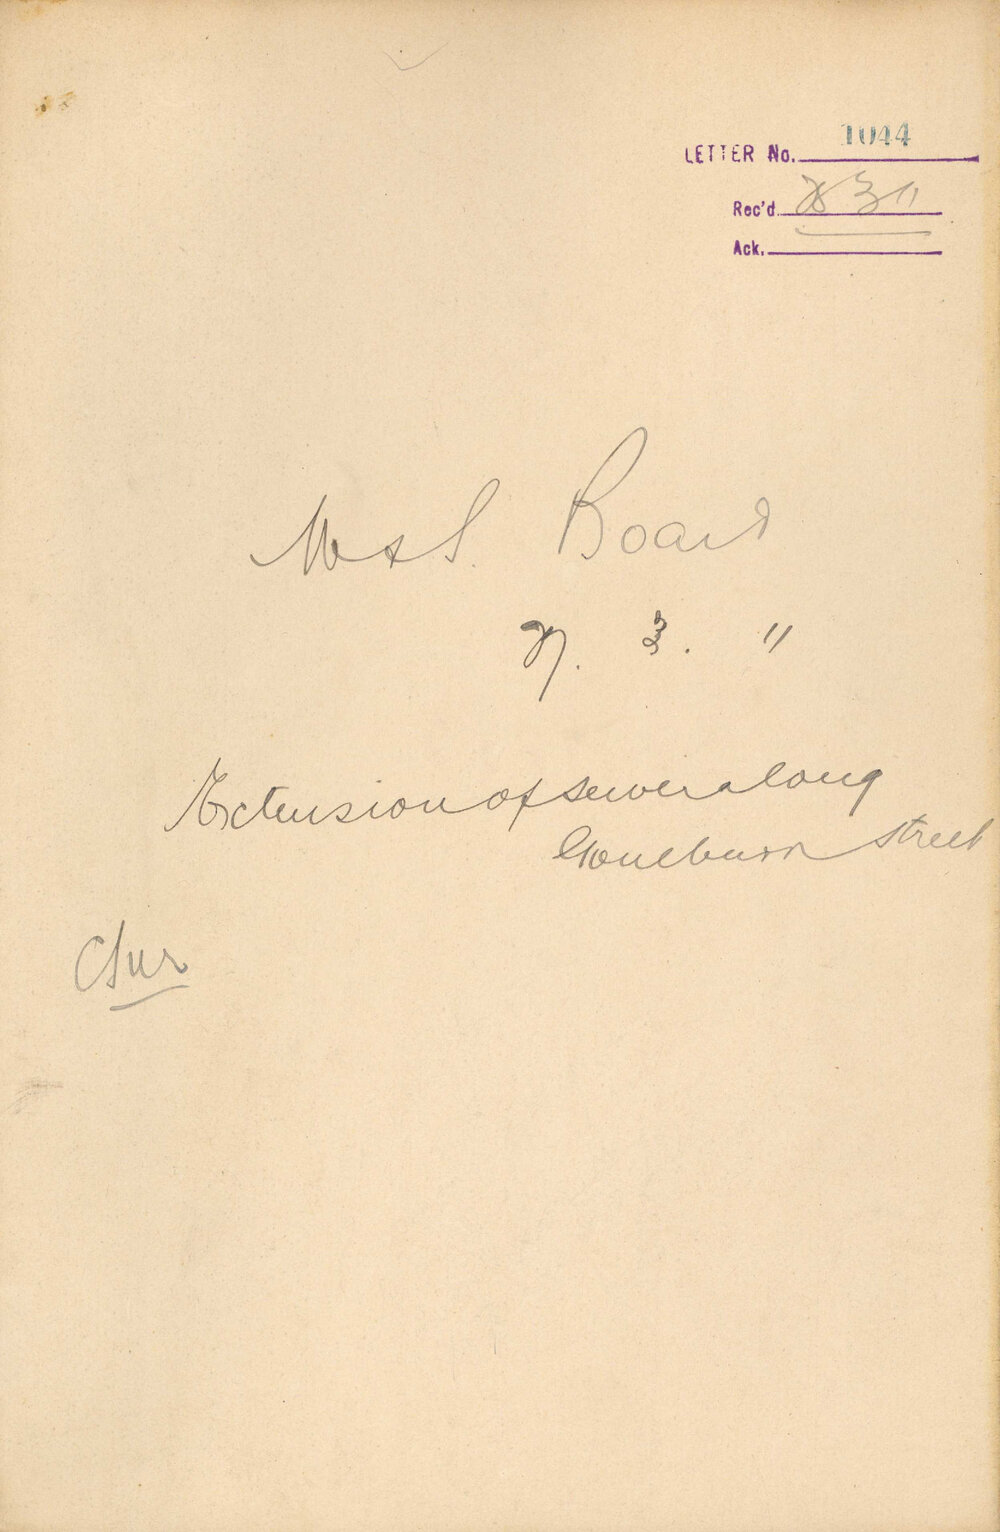 LETTER No. 1044
Rec'd 28 3 11
Ack.
W & S. Board
27. 3. 11
Extension of sewer along
Goulburn Street